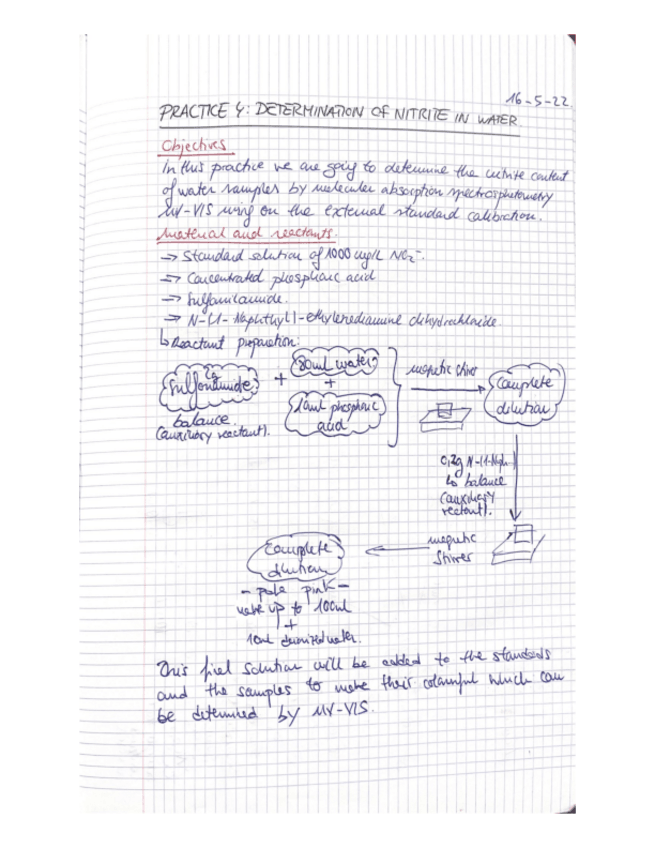 16-5-22.
PRACTICE 4: DETERMINATION OF NITRITE IN WATER.
Objectives
In this practice we are going to determine the nitrite content
of water samples by molecular absorption spectrophotometry
UV-VIS using on the external standard calibration.
Material and reactants.
→ Standard solution of 1000 mg/L NO2-.
→ Concentrated phosphoric acid
→ Sulfanilamide.
→ N-(1-Naphthyl)-ethylenediamine dihydrochloride.
↳ Reactant preparation:
2g
Sulfonamide
balance.
(auxiliary reactant).
+
80mL water
+
10mL phosphoric
acid
magnetic stirer
Complete
dilution
0,2g N-(1-Naph)
↳ balance
(auxiliary
reactant).
magnetic
stirrer
Complete
dilution
- pale pink -
make up to 100mL
+
10mL deionized water.
This final solution will be added to the standards
and the samples to make their colourful which can
be determined by UV-VIS.